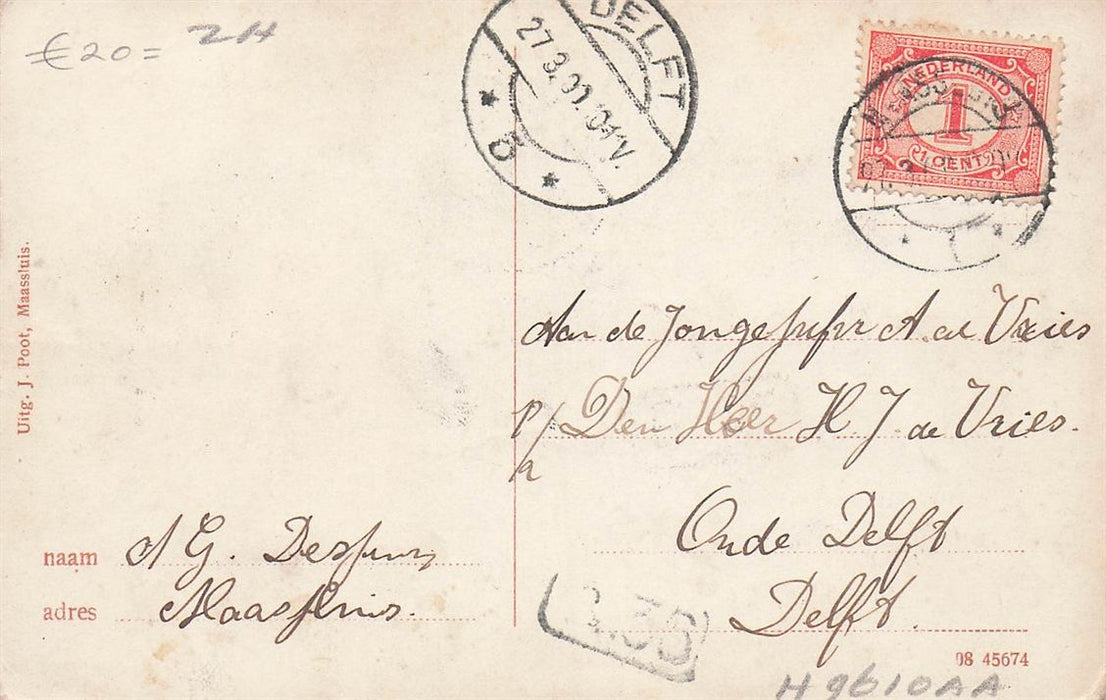 € 20= ZH
DELFT
27.3.09.10-11V.
5
NEDERLAND
1
1 CENT
1
Uitg. J. Poot, Maassluis.
Aan de Jongejufvr A. de Vries
P/a Den Heer H J de Vries.
Oude Delft
Delft.
naam A G.
adres Maassluis.
08 45674
H9610AA